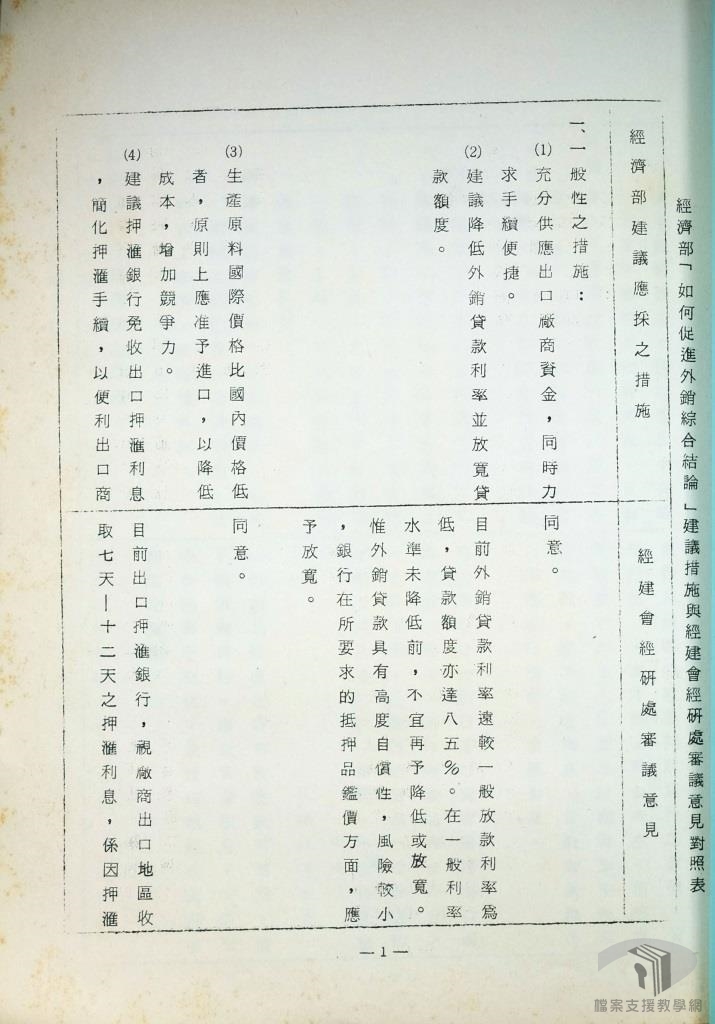 經濟部「如何促進外銷綜合結論」建議措施與經建會經研處審議意見對照表
經濟部建議應採之措施
一、一般性之措施：
(1)充分供應出口廠商資金，同時力
求手續便捷。
(2)建議降低外銷貸款利率並放寬貸
款額度。
(3)生產原料國際價格比國內價格低
者，原則上應准予進口，以降低
成本，增加競爭力。
(4)建議押滙銀行免收出口押滙利息
，簡化押滙手續，以便利出口商
經建會經研處審議意見
同意。
目前外銷貸款利率遠較一般放款利率為
低，貸款額度亦達八五%。在一般利率
水準未降低前，不宜再予降低或放寬。
惟外銷貸款具有高度自償性，風險較小
，銀行在所要求的抵押品鑑價方面，應
予放寬。
同意。
目前出口押滙銀行，視廠商出口地區收
取七天—十二天之押滙利息，係因押滙
—1—
檔案支援教學網